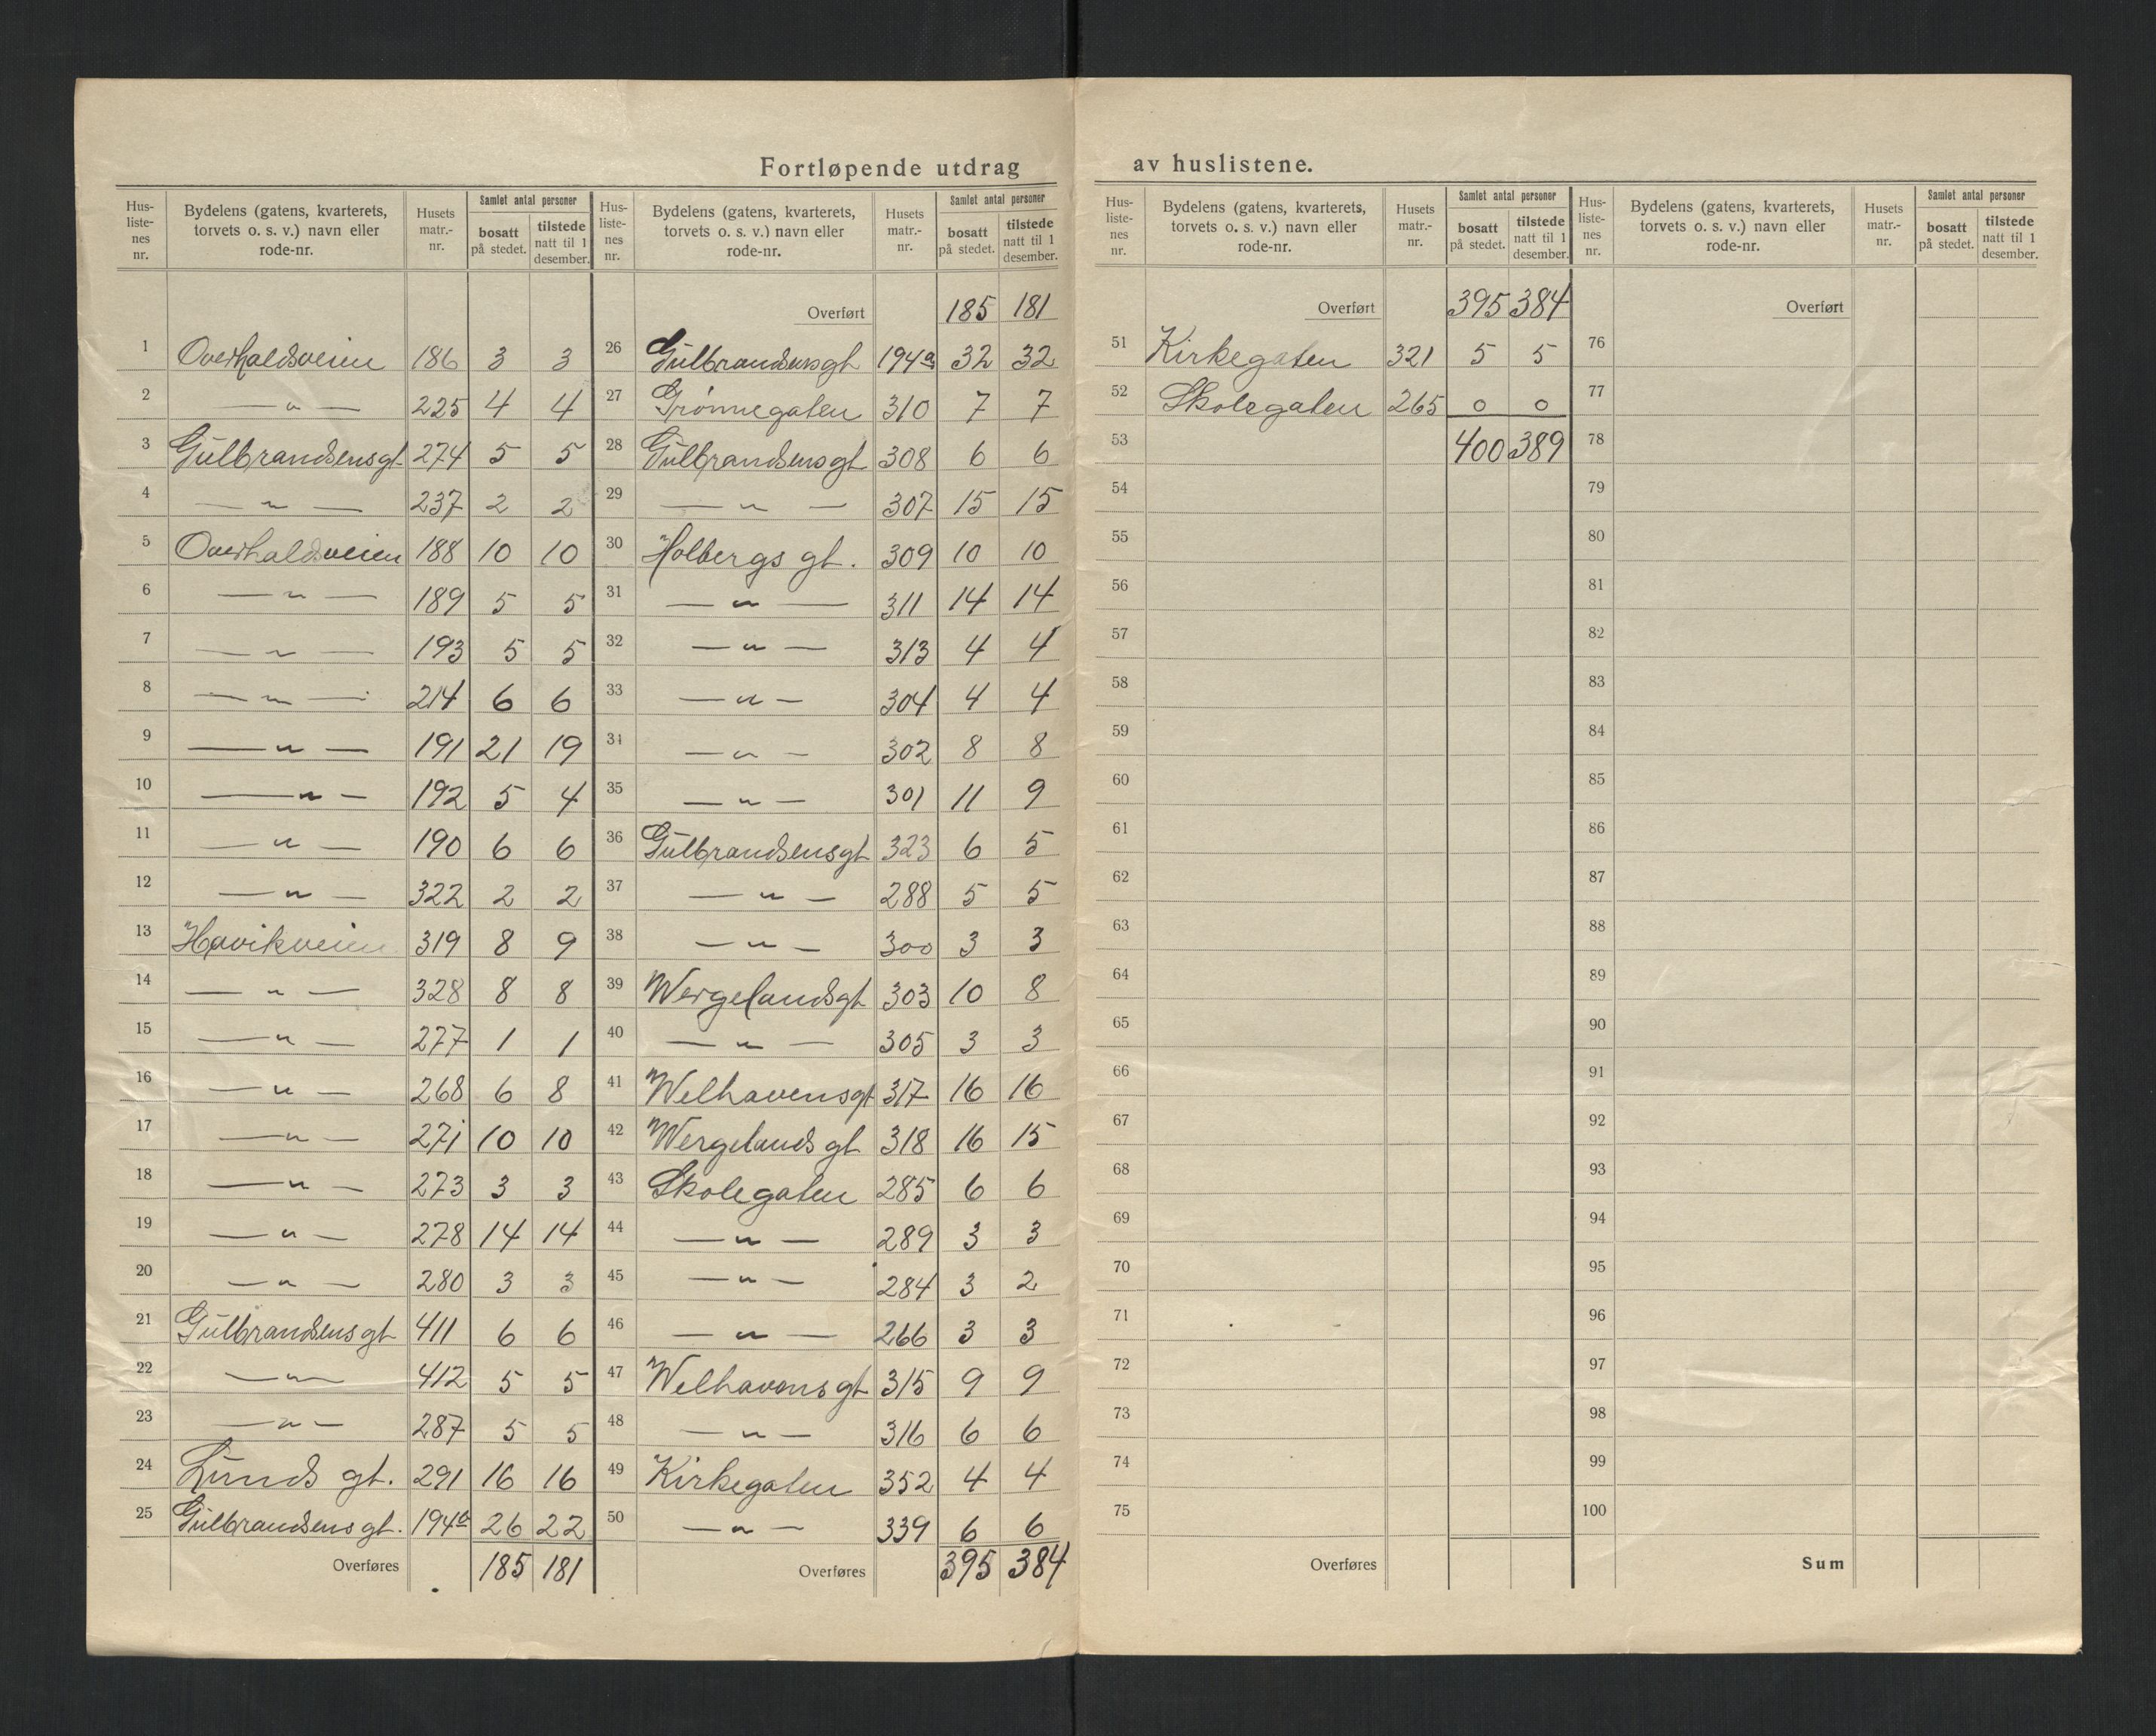 Fortløpende utdrag av huslistene.
Hus-liste-nes nr. | Bydelens (gatens, kvarterets, torvets o. s. v.) navn eller rode-nr. | Husets matr.-nr. | Samlet antal personer bosatt på stedet. | tilstede natt til 1 desember.
1 Overhaldsveien 186 3 3
2 — " — 225 4 4
3 Gulbrandsensgt 274 5 5
4 — " — 237 2 2
5 Overhaldsveien 188 10 10
6 — " — 189 5 5
7 — " — 193 5 5
8 — " — 214 6 6
9 — " — 191 21 19
10 — " — 192 5 4
11 — " — 190 6 6
12 — " — 322 2 2
13 Havikveien 319 8 9
14 — " — 328 8 8
15 — " — 277 1 1
16 — " — 268 6 8
17 — " — 271 10 10
18 — " — 273 3 3
19 — " — 278 14 14
20 — " — 280 3 3
21 Gulbrandsensgt 411 6 6
22 — " — 412 5 5
23 — " — 287 5 5
24 Lunds gt. 291 16 16
25 Gulbrandsens gt. 194a 26 22
Overføres 185 181
Hus-liste-nes nr. | Bydelens (gatens, kvarterets, torvets o. s. v.) navn eller rode-nr. | Husets matr.-nr. | Samlet antal personer bosatt på stedet. | tilstede natt til 1 desember.
Overført 185 181
26 Gulbrandsensgt 194a 32 32
27 Grønnegaten 310 7 7
28 Gulbrandsensgt 308 6 6
29 — " — 307 15 15
30 Holbergs gt. 309 10 10
31 — " — 311 14 14
32 — " — 313 4 4
33 — " — 304 4 4
34 — " — 302 8 8
35 — " — 301 11 9
36 Gulbrandsensgt 323 6 5
37 — " — 288 5 5
38 — " — 300 3 3
39 Wergelandsgt 303 10 8
40 — " — 305 3 3
41 Welhavensgt 317 16 16
42 Wergelands gt 318 16 15
43 Skolegaten 285 6 6
44 — " — 289 3 3
45 — " — 284 3 2
46 — " — 266 3 3
47 Welhavens gt 315 9 9
48 — " — 316 6 6
49 Kirkegaten 352 4 4
50 — " — 339 6 6
Overføres 395 384
Hus-liste-nes nr. | Bydelens (gatens, kvarterets, torvets o. s. v.) navn eller rode-nr. | Husets matr.-nr. | Samlet antal personer bosatt på stedet. | tilstede natt til 1 desember.
Overført 395 384
51 Kirkegaten 321 5 5
52 Skolegaten 265 0 0
53 400 389
54
55
56
57
58
59
60
61
62
63
64
65
66
67
68
69
70
71
72
73
74
75
Overføres
Hus-liste-nes nr. | Bydelens (gatens, kvarterets, torvets o. s. v.) navn eller rode-nr. | Husets matr.-nr. | Samlet antal personer bosatt på stedet. | tilstede natt til 1 desember.
Overført
76
77
78
79
80
81
82
83
84
85
86
87
88
89
90
91
92
93
94
95
96
97
98
99
100
Sum